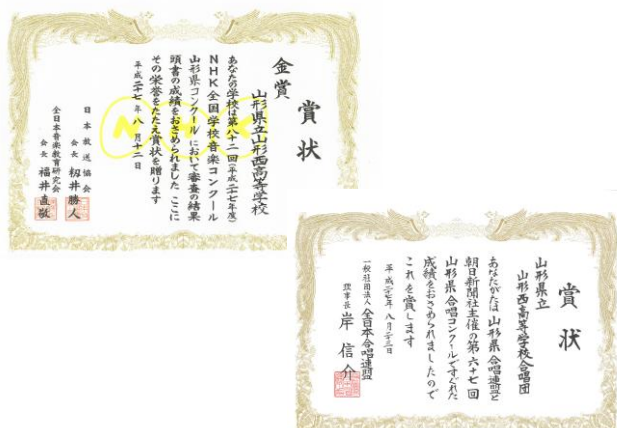 賞状
金賞
山形県立山形西高等学校
あなたの学校は第八十二回(平成二十七年度)
NHK全国学校音楽コンクール
山形県コンクールにおいて審査の結果
頭書の成績をおさめられました ここに
その栄誉をたたえ賞状を贈ります
平成二十七年八月十二日
日本放送協会
会長 籾井勝人
全日本音楽教育研究会
会長 福井直敬
NHK
賞状
山形県立
山形西高等学校合唱団
あなたがたは山形県合唱連盟と
朝日新聞社主催の第六十七回
山形県合唱コンクールですぐれた
成績をおさめられましたので
これを賞します
平成二七年八月二三日
一般社団法人全日本合唱連盟
理事長 岸信介